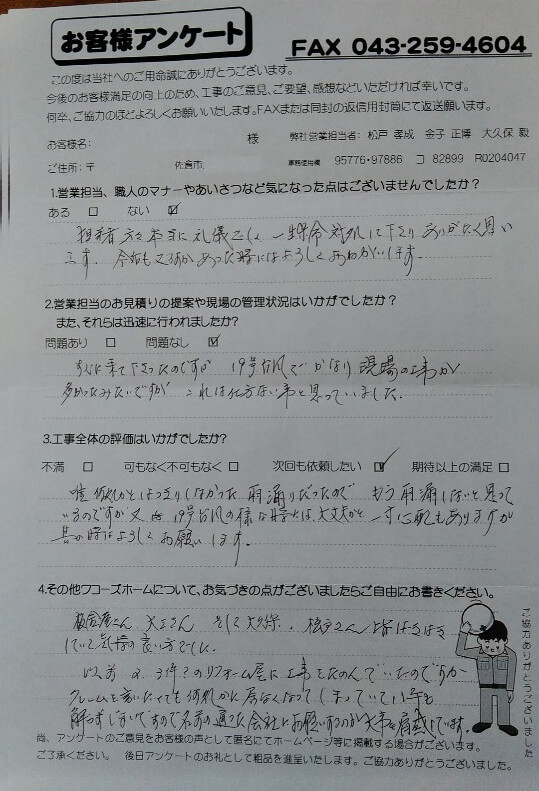 お客様アンケート
FAX 043-259-4604
この度は当社へのご用命誠にありがとうございます。
今後のお客様満足の向上のため、工事のご意見、ご要望、感想などいただければ幸いです。
何卒、ご協力のほどよろしくお願いいたします。FAXまたは同封の返信用封筒にて返送願います。
お客様名: 様 弊社営業担当者: 松戸 孝成 金子 正博 大久保 毅
ご住所:〒 佐倉市 事務使用欄 95776・97886 コ 82899 R0204047
1.営業担当、職人のマナーやあいさつなど気になった点はございませんでしたか?
ある □ ない ☑
担当者 方も本当に礼儀正しく 一生懸命対処して下さり ありがたく思い
ます。今後も又何かあった時にはよろしくおねがいします。
2.営業担当のお見積りの提案や現場の管理状況はいかがでしたか?
また、それらは迅速に行われましたか?
問題あり □ 問題なし ☑
すぐに来て下さったのですが 19号台風でかなり現場の工事が
多かったみたいですが これは仕方ない事と思っていました。
3.工事全体の評価はいかがでしたか?
不満 □ 可もなく不可もなく □ 次回も依頼したい ☑ 期待以上の満足 □
はっきりしなかった 雨漏りだったので もう雨漏しないと思って
いるのですが又 19号台風の様な時は大丈夫かと 一寸心配もありますが
其の時はよろしくお願いします。
4.その他フコーズホームについて、お気づきの点がございましたらご自由にお書きください。
板金屋さん 大工さん そして大久保、松戸さん 皆はきはき
していて気持の良い方でした。
以前 2、3件?のリフォーム屋に工事をたのんでいたのですが
クレームを言いたくても何れかに居なくなってしまっていて
名前の通った会社にお願いするのが大事と痛感しています。
尚、アンケートのご意見をお客様の声として匿名にてホームページ等に掲載する場合がございます。
ご了承ください。 後日アンケートのお礼として粗品を進呈いたします。ご協力ありがとうございました。
ご協力ありがとうございました